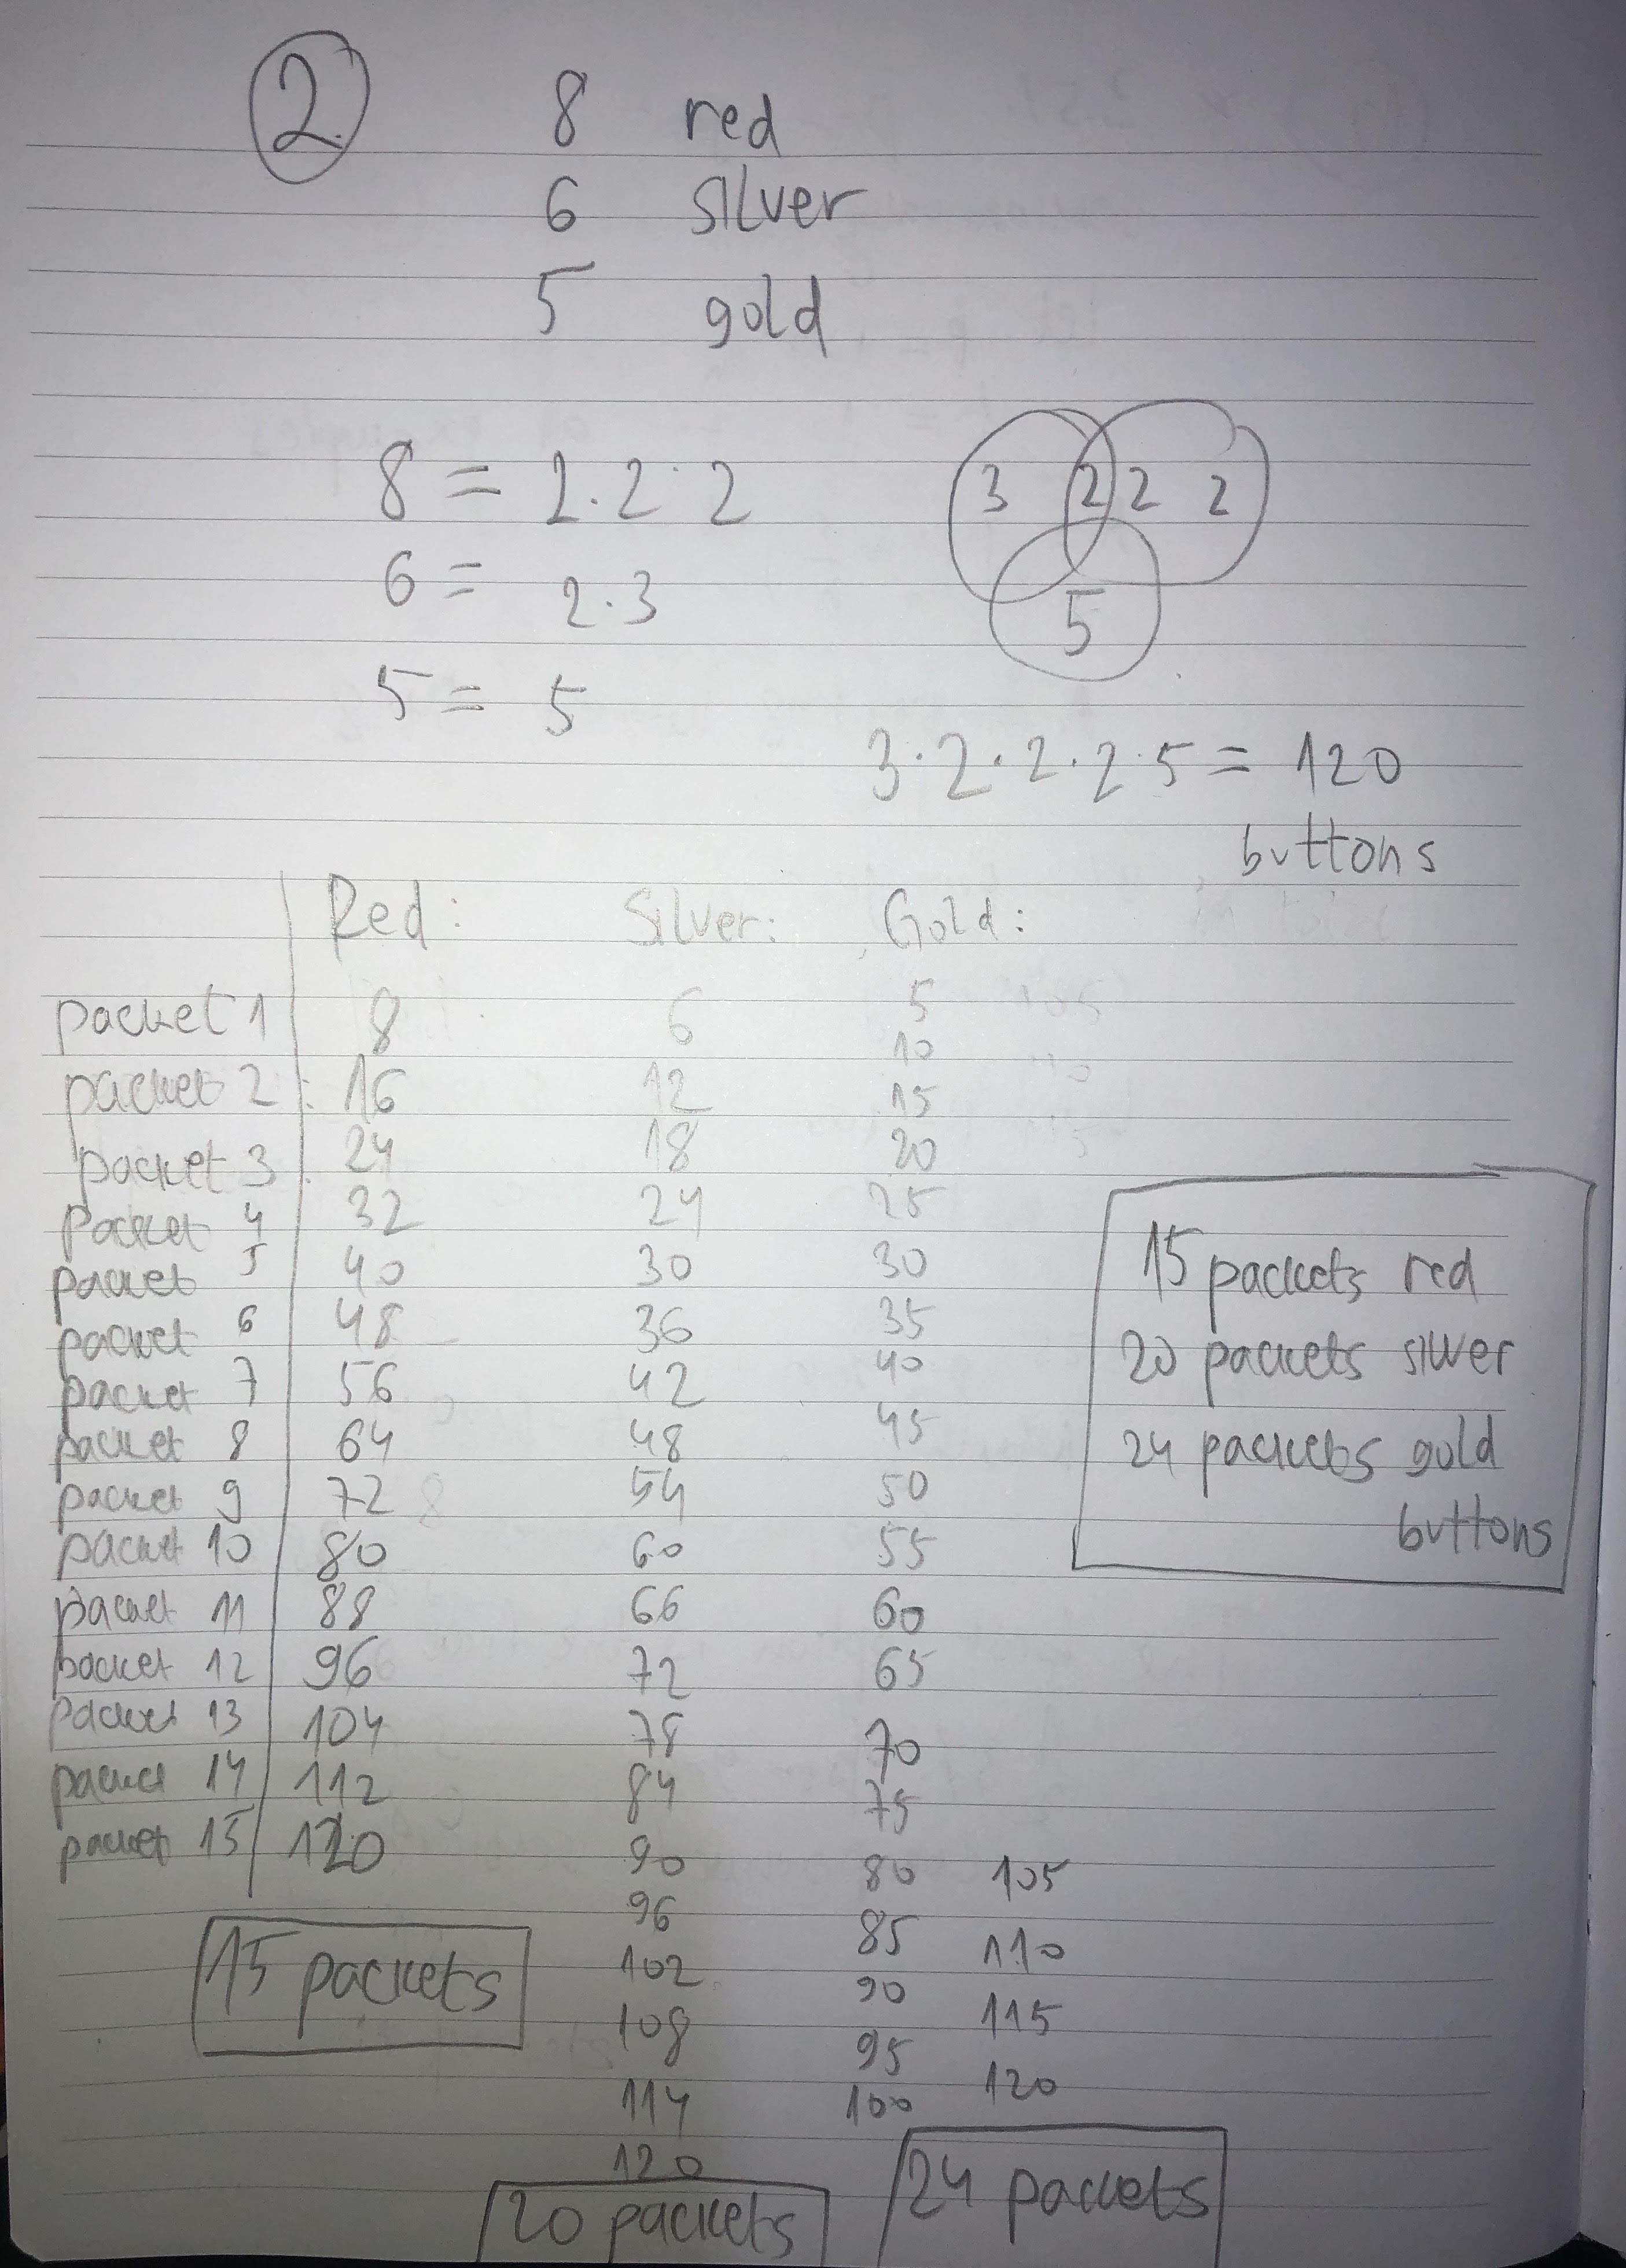 2.
8 red
6 silver
5 gold
8 = 2·2·2
6 = 2·3
5 = 5
3 2 2 2
5
3·2·2·2·5 = 120
buttons
Red: Silver: Gold:
packet 1 8 6 5
10
packet 2 : 16 12 15
packet 3 24 18 20
packet 4 32 24 25
packet 5 40 30 30
packet 6 48 36 35
packet 7 56 42 40
packet 8 64 48 45
packet 9 72 54 50
packet 10 80 60 55
packet 11 88 66 60
packet 12 96 72 65
packet 13 104 78 70
packet 14 112 84 75
packet 15 120 90 80 105
96 85 110
102 90 115
108 95 120
114 100
120
15 packets
20 packets
24 packets
15 packets red
20 packets silver
24 packets gold
buttons